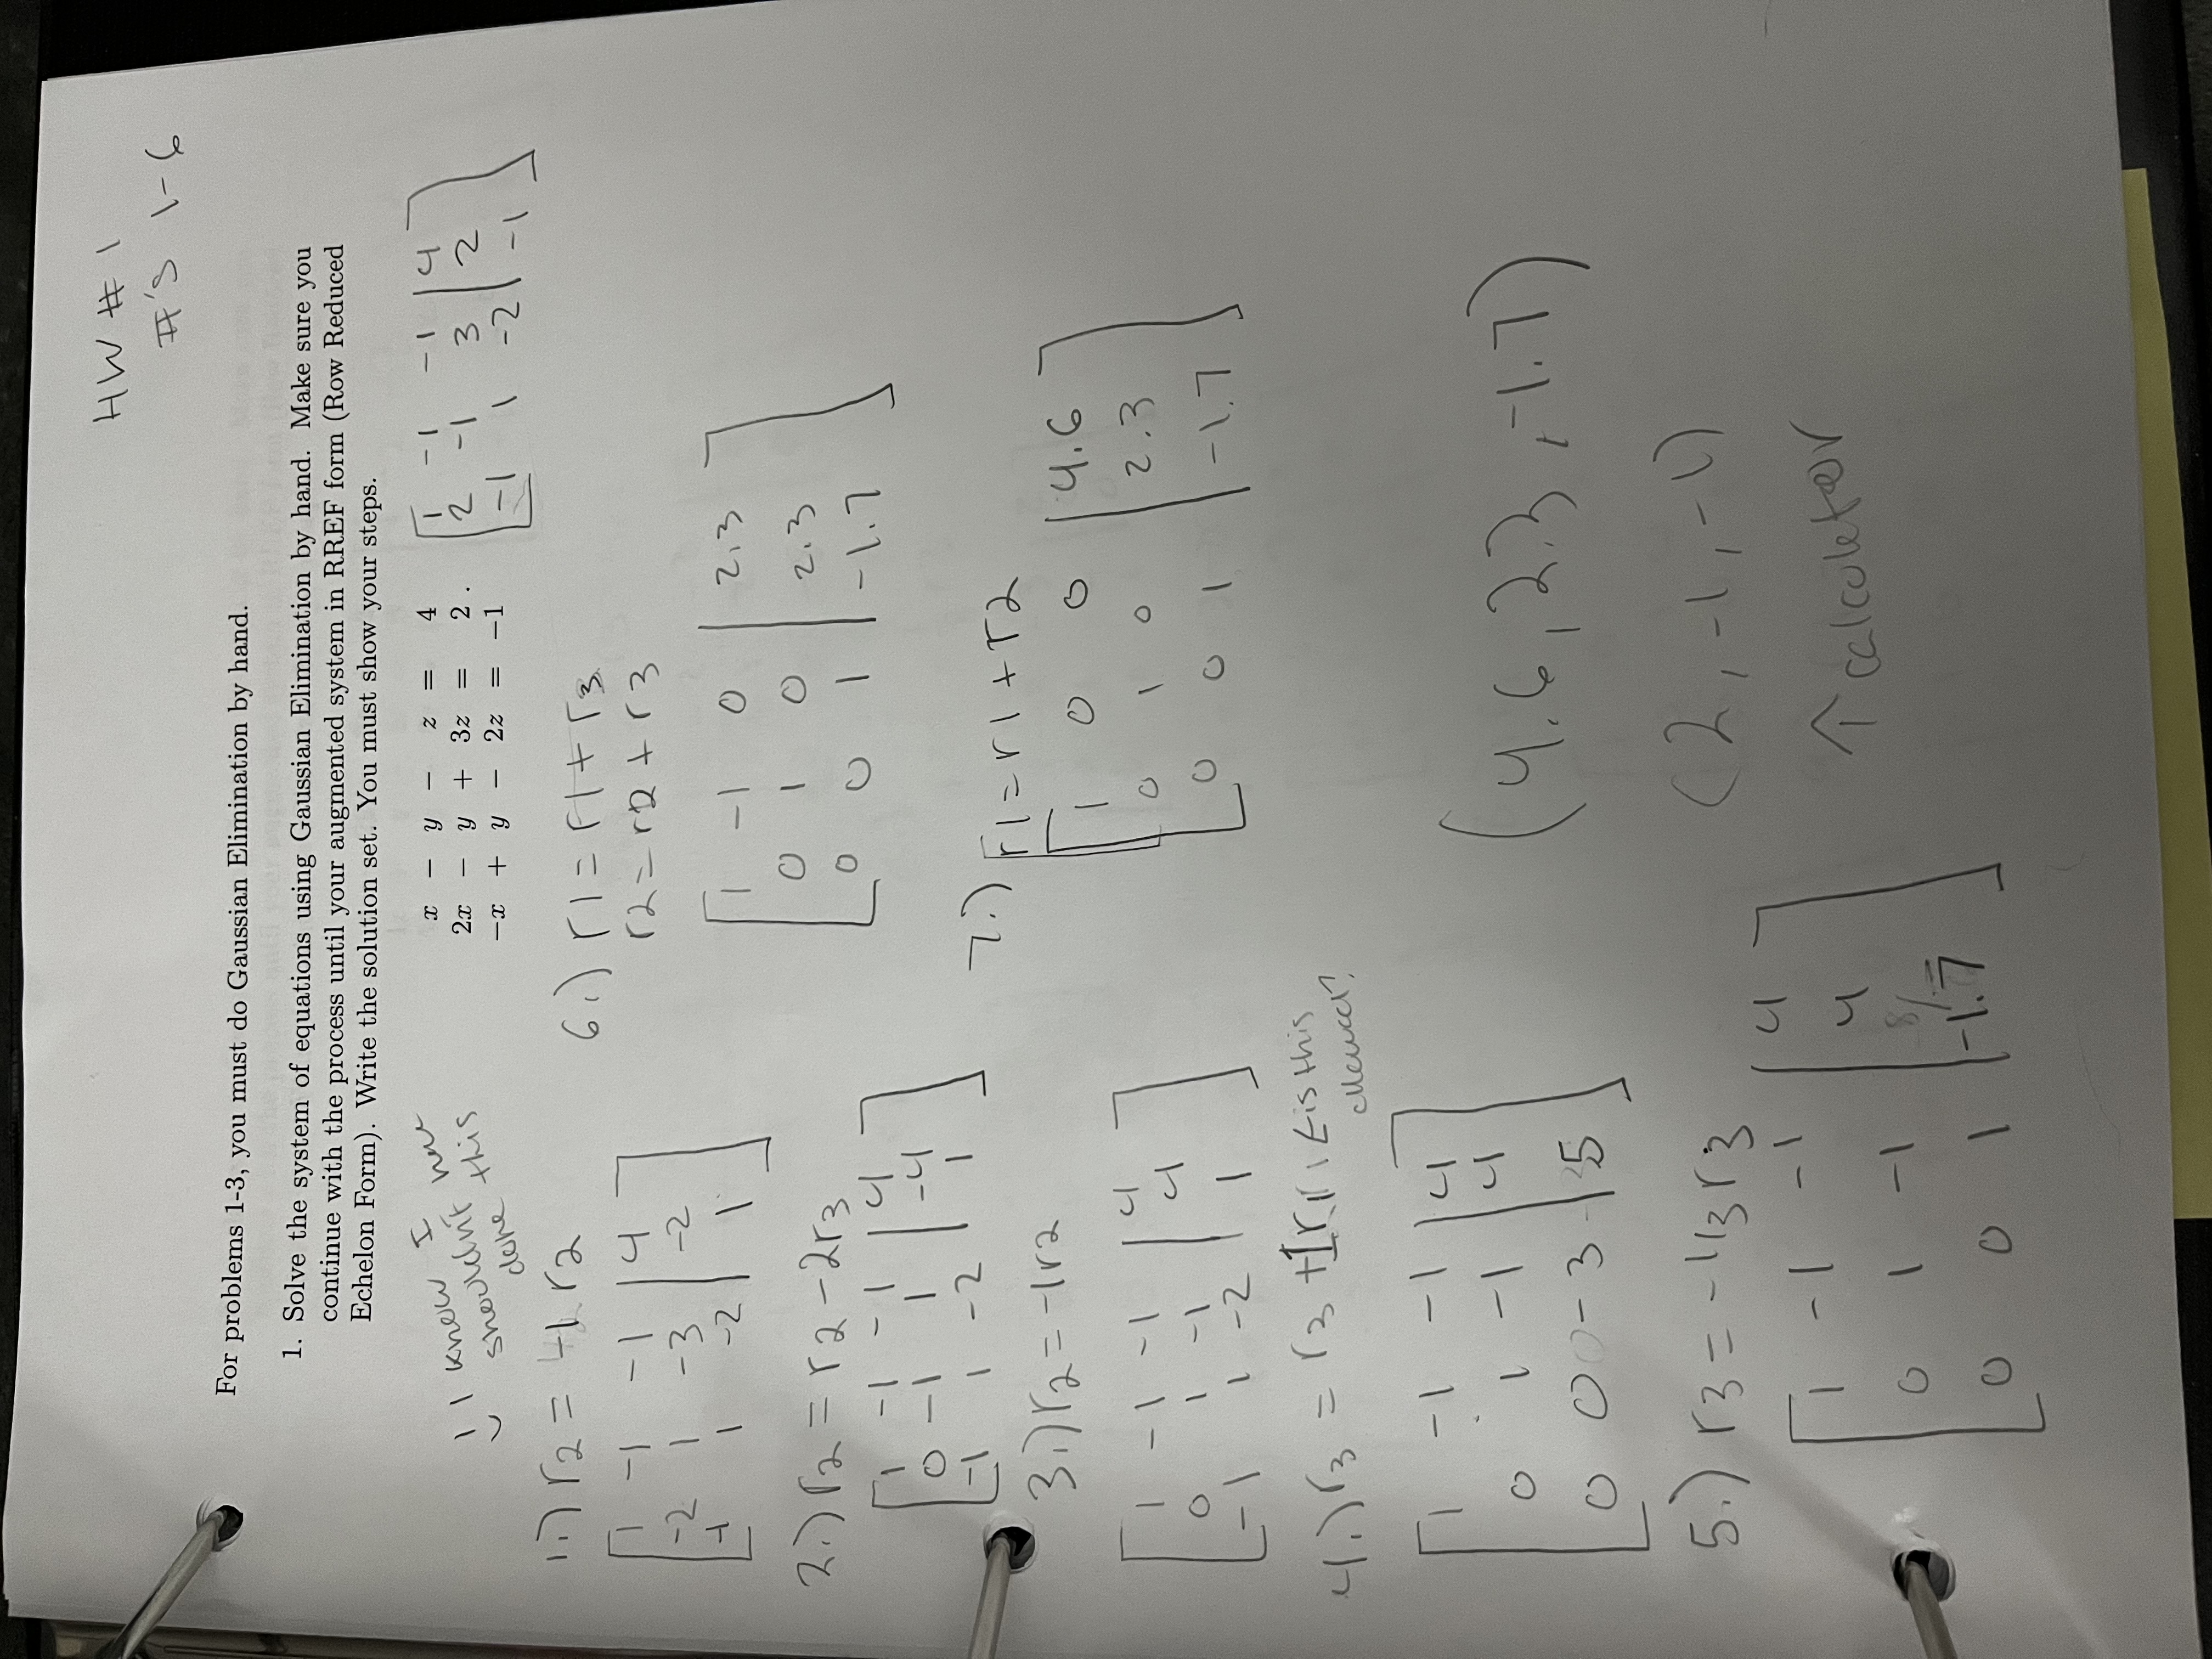 HW # 1
#'s 1-6
For problems 1-3, you must do Gaussian Elimination by hand.
1. Solve the system of equations using Gaussian Elimination by hand. Make sure you
continue with the process until your augmented system in RREF form (Row Reduced
Echelon Form). Write the solution set. You must show your steps.
x − y − z = 4
2x − y + 3z = 2 .
−x + y − 2z = −1
1 -1 -1 | 4
2 -1 3 | 2
-1 1 -2 | -1
I know I
shouldn't have
done this
1.) r2 = -1 r2
1 -1 -1 | 4
-2 1 -3 | -2
-1 1 -2 | 1
2.) r2 = r2 - 2r3
1 -1 -1 | 4
0 -1 1 | -4
-1 1 -2 | 1
3.) r2 = -1r2
1 -1 -1 | 4
0 1 -1 | 4
-1 1 -2 | 1
4.) r3 = r3 + 1r1 ← is this
allowed?
1 -1 -1 | 4
0 1 -1 | 4
0 0 -3 | 5
5.) r3 = -1/3 r3
1 -1 -1 | 4
0 1 -1 | 4
0 0 1 | -1.7
6.) r1 = r1 + r3
r2 = r2 + r3
1 -1 0 | 2.3
0 1 0 | 2.3
0 0 1 | -1.7
7.) r1 = r1 + r2
1 0 0 | 4.6
0 1 0 | 2.3
0 0 1 | -1.7
(4.6, 2.3, -1.7)
(2, -1, -1)
↑ calculator